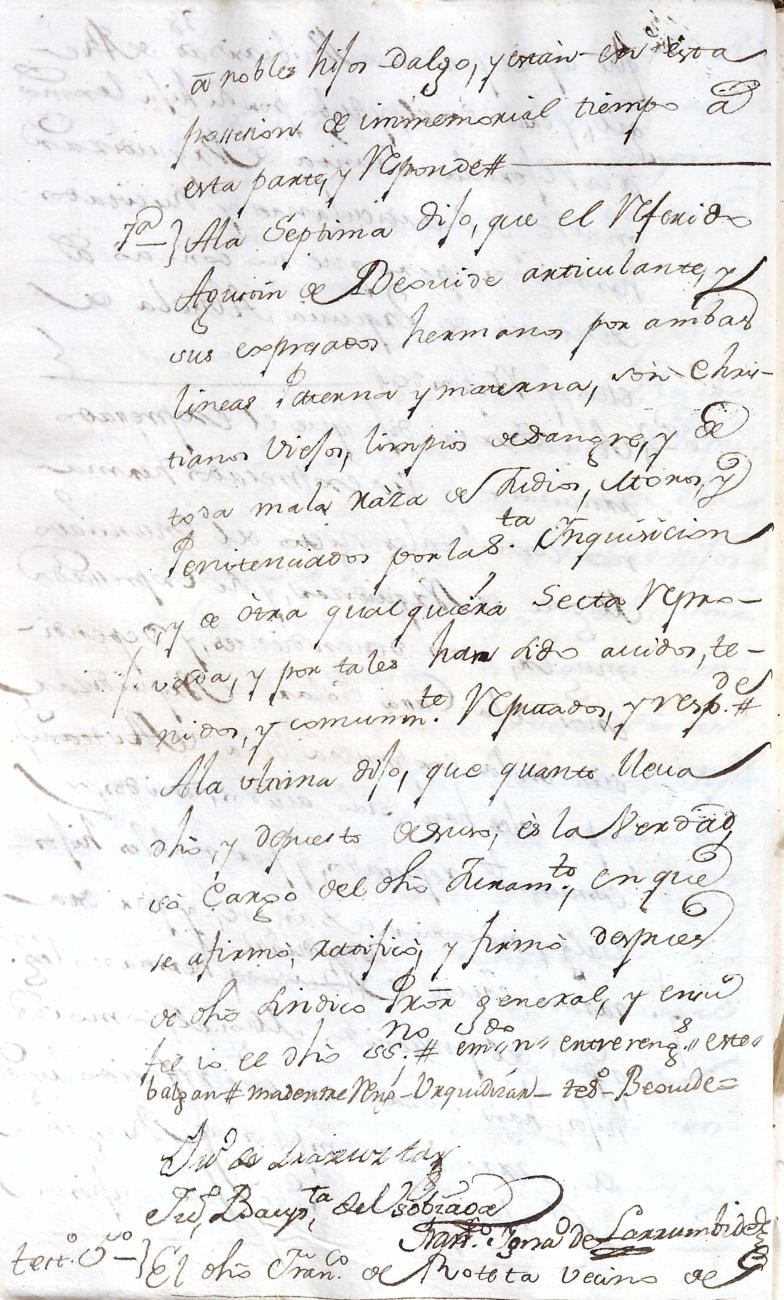 a nobles hijos Dalgo, y estan en esta
possesion de immemorial tiempo à
esta parte, y Responde#
7ª } Ala Septima dijo, que el Referido
Agustin de Beovide articulante, y
sus expresados hermanos por ambas
lineas Paterna y materna, son Chris-
tianos viejos, limpios de sangre, y de
toda mala raza de Judios, Moros, y
Penitenciados por la Sta. Inquisicion
, y de otra qualquiera Secta Repro-
vada, y por tales han sido avidos, te-
nidos, y comunmte. Reputados, y respde.#
Ala ultima dijo, que quanto lleva
dho, y depuesto desuso, es la Verdad
so Cargo del dho Juramto., en que
se afirmò, ratificò, y firmò despues
de dho Sindico Pror general, y en su
fee io el dho ssno.# emdo entrerengs. estos
balgan# Urquidizar- tesº- Beovide=
Juº de Irazuzta
Juº Baupta. del Sobrado
Franco. Ignaº de Larrumbide
testº 5º- } El dho Franco. de Roteta vecino de